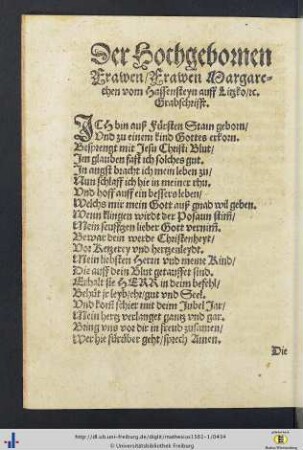 Der Hochgebornen
Frawen/Frawen Margare-
then vom Hassensteyn auff Litzko/rc.
Grabschrifft.
ICH bin auß Fürsten Stam geborn/
Vnd zu einem kind Gottes erkorn.
Besprengt mit Jesu Christi Blut/
Im glauben faßt ich solches gut.
In angst bracht ich mein leben zu/
Nun schlaff ich hie in meiner rhu.
Vnd hoff auff ein bessers leben/
Welchs mir mein Gott auß gnad wil geben.
Wenn klingen wirdt der Posaun stim/
Mein seufftzen lieber Gott vernim.
Bewar dein werde Christenheyt/
Vor Ketzerey vnd hertzenleydt.
Mein liebsten Herrn vnd meine Kind/
Die auff dein Blut getauffet sind.
Erhalt sie HERR in deim befehl/
Behüt jr leyb/ehr/gut vnd Seel.
Vnd kom schier mit deim Jubel Jar/
Mein hertz verlanget gantz vnd gar.
Bring vns vor dir in freud zusamen/
Wer hie fürüber geht/sprech Amen.
Die
http://dl.ub.uni-freiburg.de/diglit/mathesius1581-1/0434
© Universitätsbibliothek Freiburg